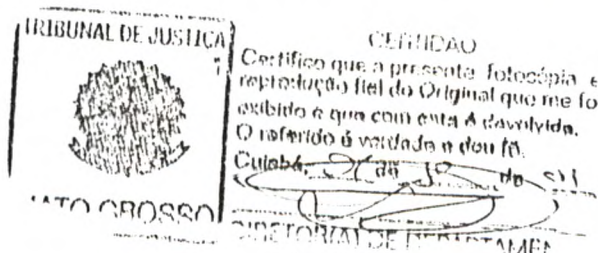 TRIBUNAL DE JUSTIÇA
MATO GROSSO
CERTIDÃO
Certifico que a presente fotocópia e
reprodução fiel do Original que me fo
exibido e que com esta é devolvida.
O referido é verdade e dou fé.
Cuiabá, de de
DIRETOR(A) DE DEPARTAMEN